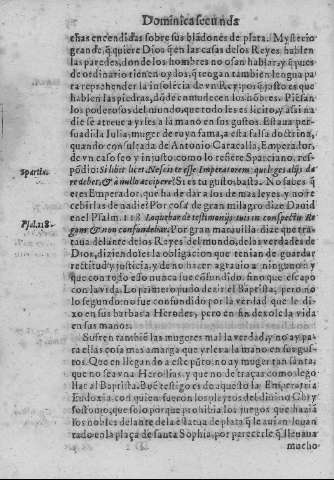 Dominica segunda
chas encendidas sobre sus blādones de plata. Mysterio
grande, q̃ quiere Dios q̃ en las casas de los Reyes hablen
las paredes, donde los hombres no osan hablar, y q̃ pues
de ordinario tienen oydos, q̃ tengan tambien lengua pa
ra reprehender la insolēcia de vn Rey: por q̃ justo es que
hablen las piedras, dōde enmudecen los hōbres. Piēsan
los poderosos del mundo, que todo les es licito, y assi na
die se atreue a yrles a la mano en sus gustos. Estaua per-
suadida Iulia, muger de ruyn fama, a esta falsa doctrina,
quando consultada de Antonio Caracalla, Emperador,
de vn caso feo y injusto, como lo refiere Sparciano, res-
Spartia.
pōdio: Si libet licet. Nescis te esse Imperatorem: qui leges alijs da
re debet, & à nullo accipere? Si es tu gusto, basta. No sabes q̃
eres Emperador, que ha de dar a los demas leyes, y no re
cebirlas de nadie? Por cosa de gran milagro dize Dauid
Psal. 118.
en el Psalm. 118. Loquebar de testimonijs tuis in conspectu Re
gum & non confundebar. Por gran marauilla dize que tra
taua delante de los Reyes del mundo, de las verdades de
Dios, diziendoles la obligacion que tenian de guardar
rectitud y justicia, y de no hazer agrauio a ninguno: y
que con todo esso nunca fue cōfundido, sino que escapo
con la vida. Lo primero pudo dezir el Baptista, pero no
lo segundo: no fue confundido por la verdad que le di-
xo en sus barbas a Herodes, pero en fin dexole la vida
en sus manos.
Sufren tambiē las mugeres mal la verdad, y no ay pa-
ra ellas cosa mas amarga que yrles a la mano en sus gus-
tos. Que en llegando a este pūto, no ay muger tan santa,
que no sea vna Herodias, y que no de traças como dego
llar al Baptista. Buē testigo es de aquesto la Emperatriz
Eudoxia, con quien fueron los pleytos del diuino Chry
sostomo, que solo porque prohibia los juegos que haziā
los nobles delante de la estatua de plata q̃ le auian leuan
tado en la plaça de santa Sophia, por parecerle q̃ lleuaua
mucho